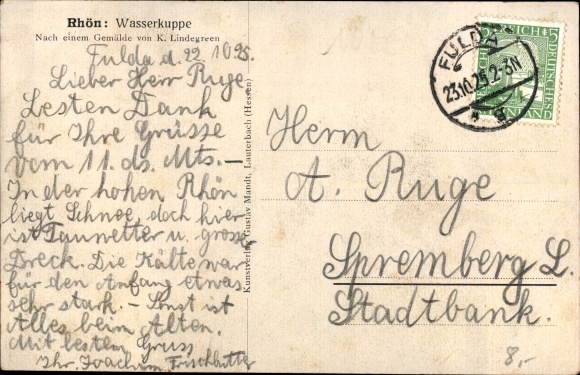 Rhön: Wasserkuppe
Nach einem Gemälde von K. Lindegreen
Fulda d. 22.10.25.
Lieber Herr Ruge
Besten Dank
für Ihre Grüsse
vom 11. ds. Mts. –
In der hohen Rhön
liegt Schnee, doch hier
ist Tauwetter u. grosser
Dreck. Die Kälte war
für den Anfang etwas
sehr stark. – Sonst ist
Alles beim Alten.
Mit bestem Gruss
Ihr Joachim
Kunstverlag Gustav Mandt, Lauterbach (Hessen)
FULDA
23.10.25 2-3N
DEUTSCHES
REICH
5
Herrn
A. Ruge
Spremberg L.
Stadtbank.
8,-